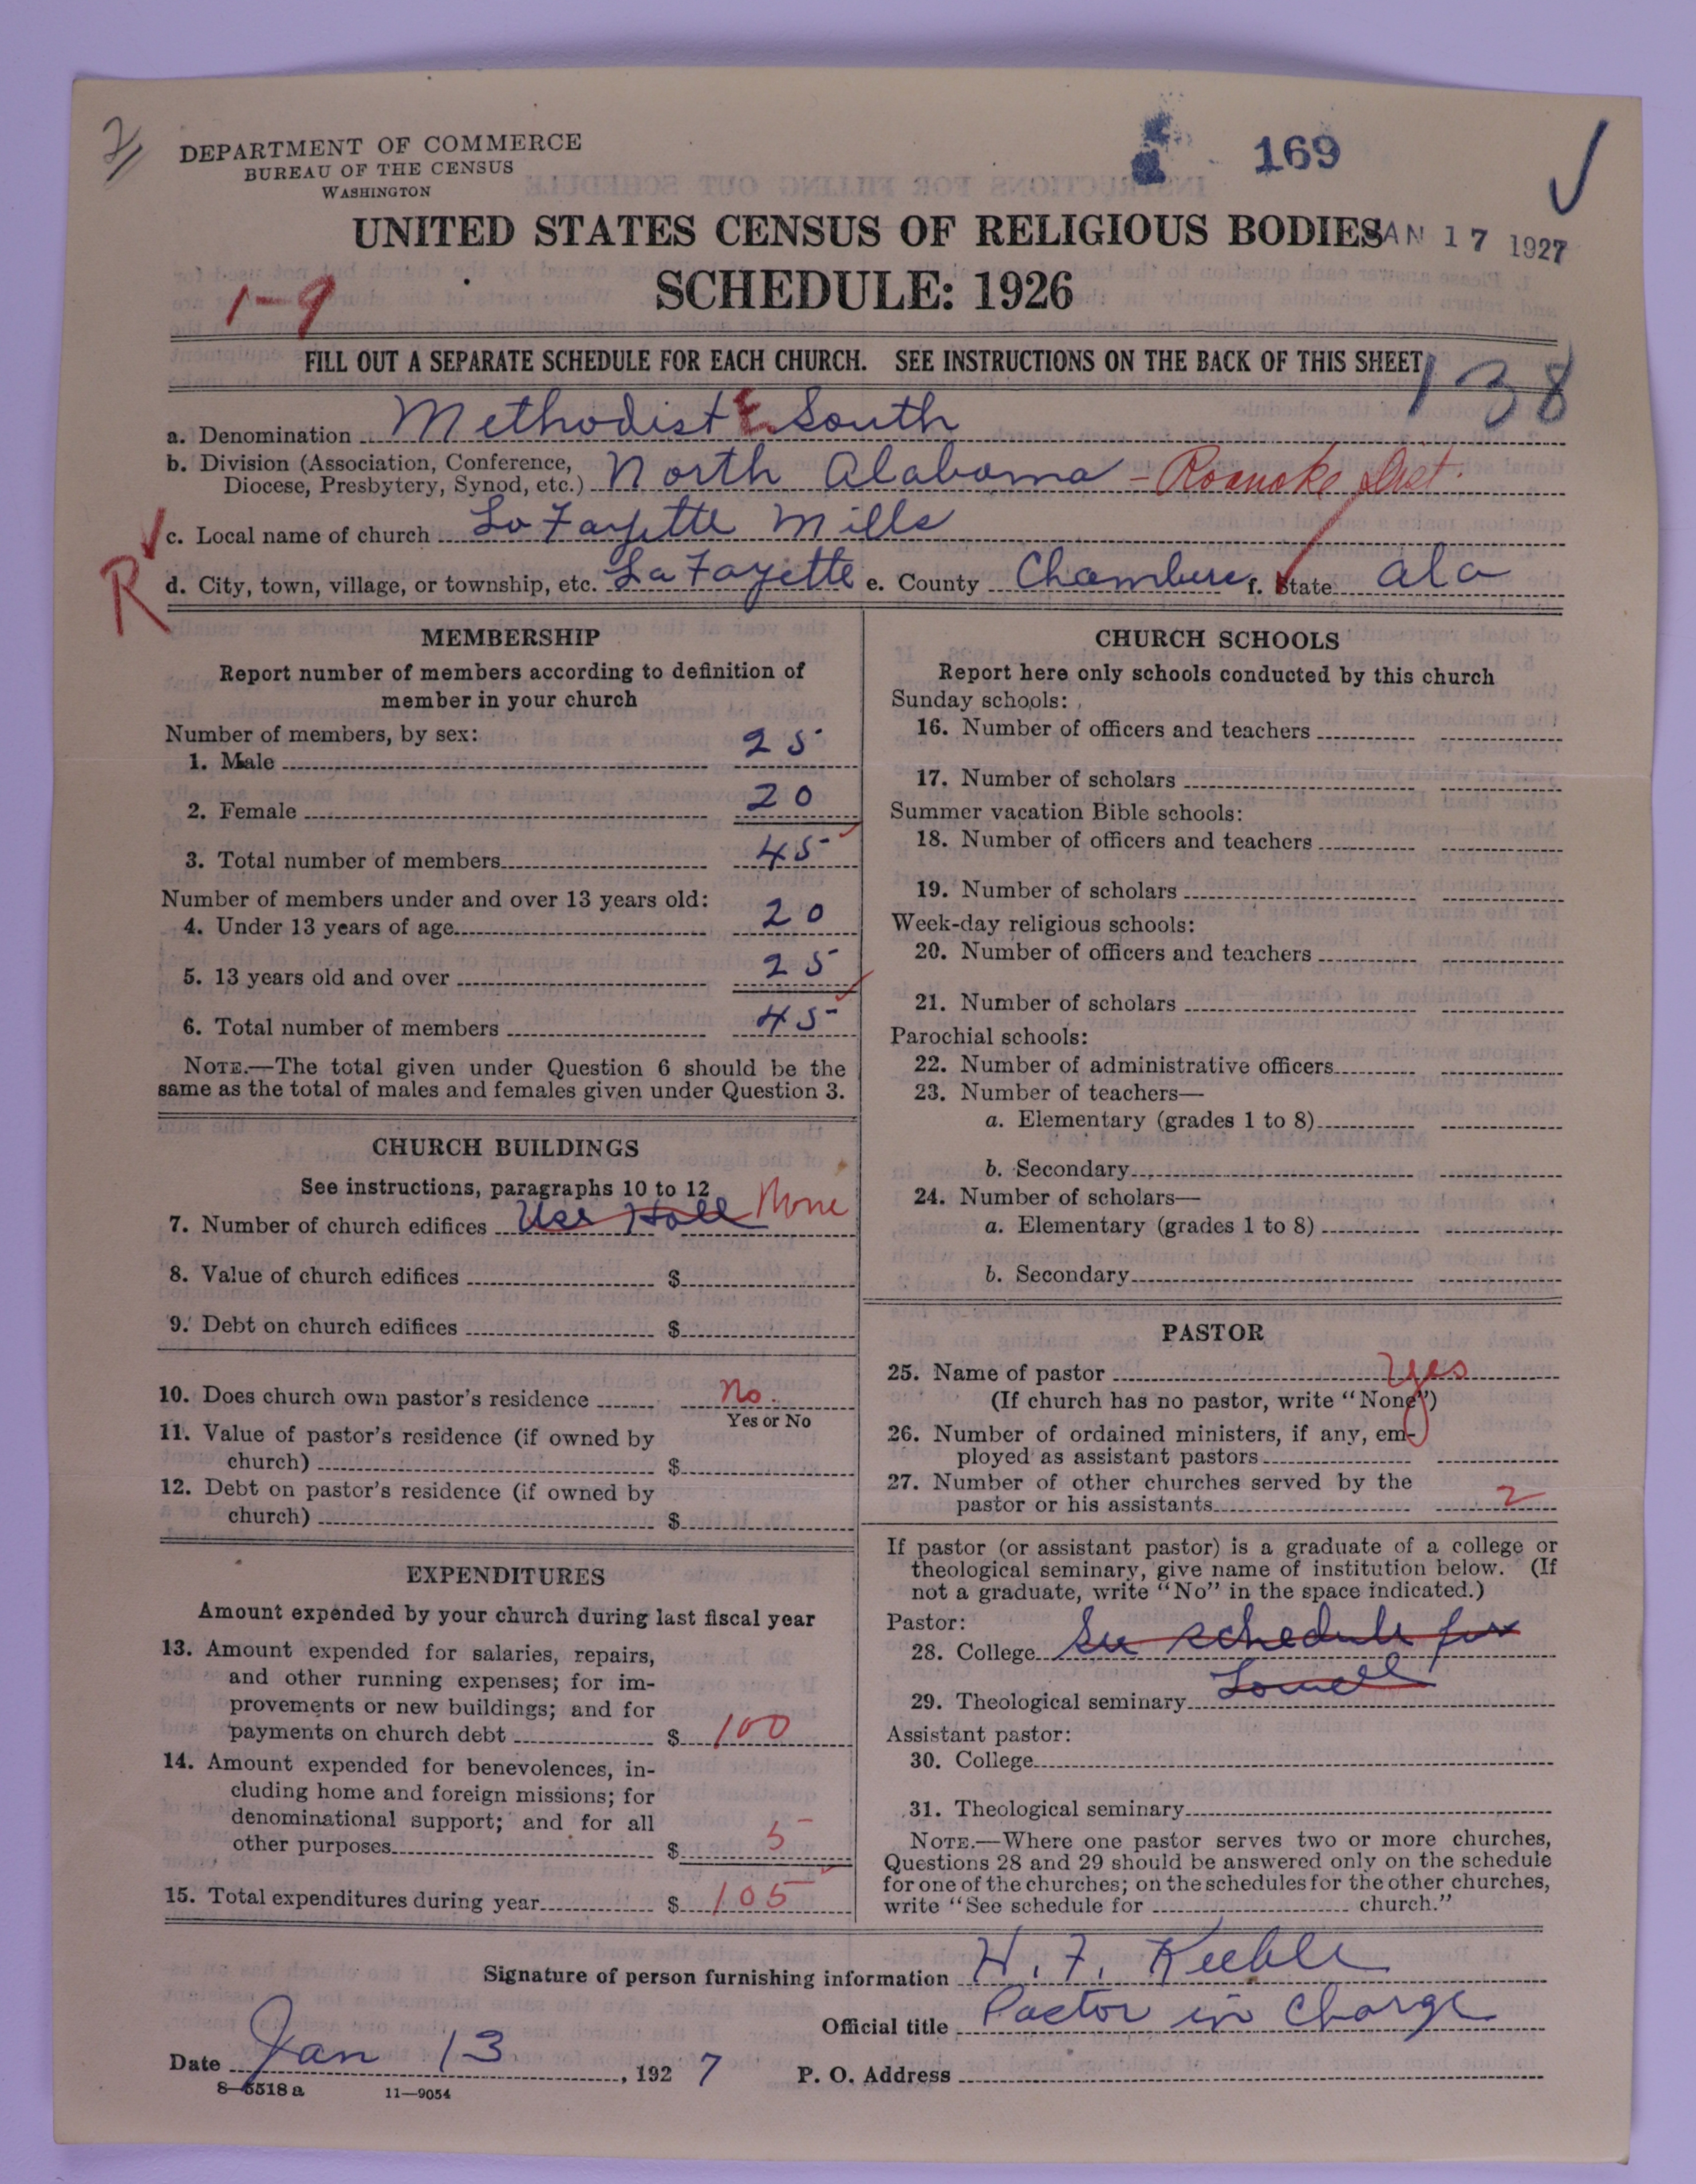 DEPARTMENT OF COMMERCE
BUREAU OF THE CENSUS
WASHINGTON
169
UNITED STATES CENSUS OF RELIGIOUS BODIES
AN 17 1927
SCHEDULE: 1926
1-9
FILL OUT A SEPARATE SCHEDULE FOR EACH CHURCH. SEE INSTRUCTIONS ON THE BACK OF THIS SHEET
138
a. Denomination Methodist E. South
b. Division (Association, Conference, Diocese, Presbytery, Synod, etc.) North Alabama - Roanoke Dist.
c. Local name of church La Fayette Mills
R
d. City, town, village, or township, etc. La Fayette e. County Chambers f. State Ala
MEMBERSHIP
Report number of members according to definition of
member in your church
Number of members, by sex:
1. Male 25
2. Female 20
3. Total number of members 45
Number of members under and over 13 years old:
4. Under 13 years of age 20
5. 13 years old and over 25
6. Total number of members 45
NOTE.—The total given under Question 6 should be the
same as the total of males and females given under Question 3.
CHURCH BUILDINGS
See instructions, paragraphs 10 to 12
7. Number of church edifices Use Hall None
8. Value of church edifices $
9. Debt on church edifices $
10. Does church own pastor's residence No.
Yes or No
11. Value of pastor's residence (if owned by
church) $
12. Debt on pastor's residence (if owned by
church) $
EXPENDITURES
Amount expended by your church during last fiscal year
13. Amount expended for salaries, repairs,
and other running expenses; for im-
provements or new buildings; and for
payments on church debt $ 100
14. Amount expended for benevolences, in-
cluding home and foreign missions; for
denominational support; and for all
other purposes $ 5
15. Total expenditures during year $ 105
CHURCH SCHOOLS
Report here only schools conducted by this church
Sunday schools:
16. Number of officers and teachers
17. Number of scholars
Summer vacation Bible schools:
18. Number of officers and teachers
19. Number of scholars
Week-day religious schools:
20. Number of officers and teachers
21. Number of scholars
Parochial schools:
22. Number of administrative officers
23. Number of teachers—
a. Elementary (grades 1 to 8)
b. Secondary
24. Number of scholars—
a. Elementary (grades 1 to 8)
b. Secondary
PASTOR
25. Name of pastor Yes
(If church has no pastor, write "None")
26. Number of ordained ministers, if any, em-
ployed as assistant pastors
27. Number of other churches served by the
pastor or his assistants 2
If pastor (or assistant pastor) is a graduate of a college or
theological seminary, give name of institution below. (If
not a graduate, write "No" in the space indicated.)
Pastor:
28. College See schedule for
29. Theological seminary Lowell
Assistant pastor:
30. College
31. Theological seminary
NOTE.—Where one pastor serves two or more churches,
Questions 28 and 29 should be answered only on the schedule
for one of the churches; on the schedules for the other churches,
write "See schedule for church."
Signature of person furnishing information H. F. Keeble
Official title Pastor in Charge
Date Jan 13, 1927 P. O. Address
8—5518 a 11—9054